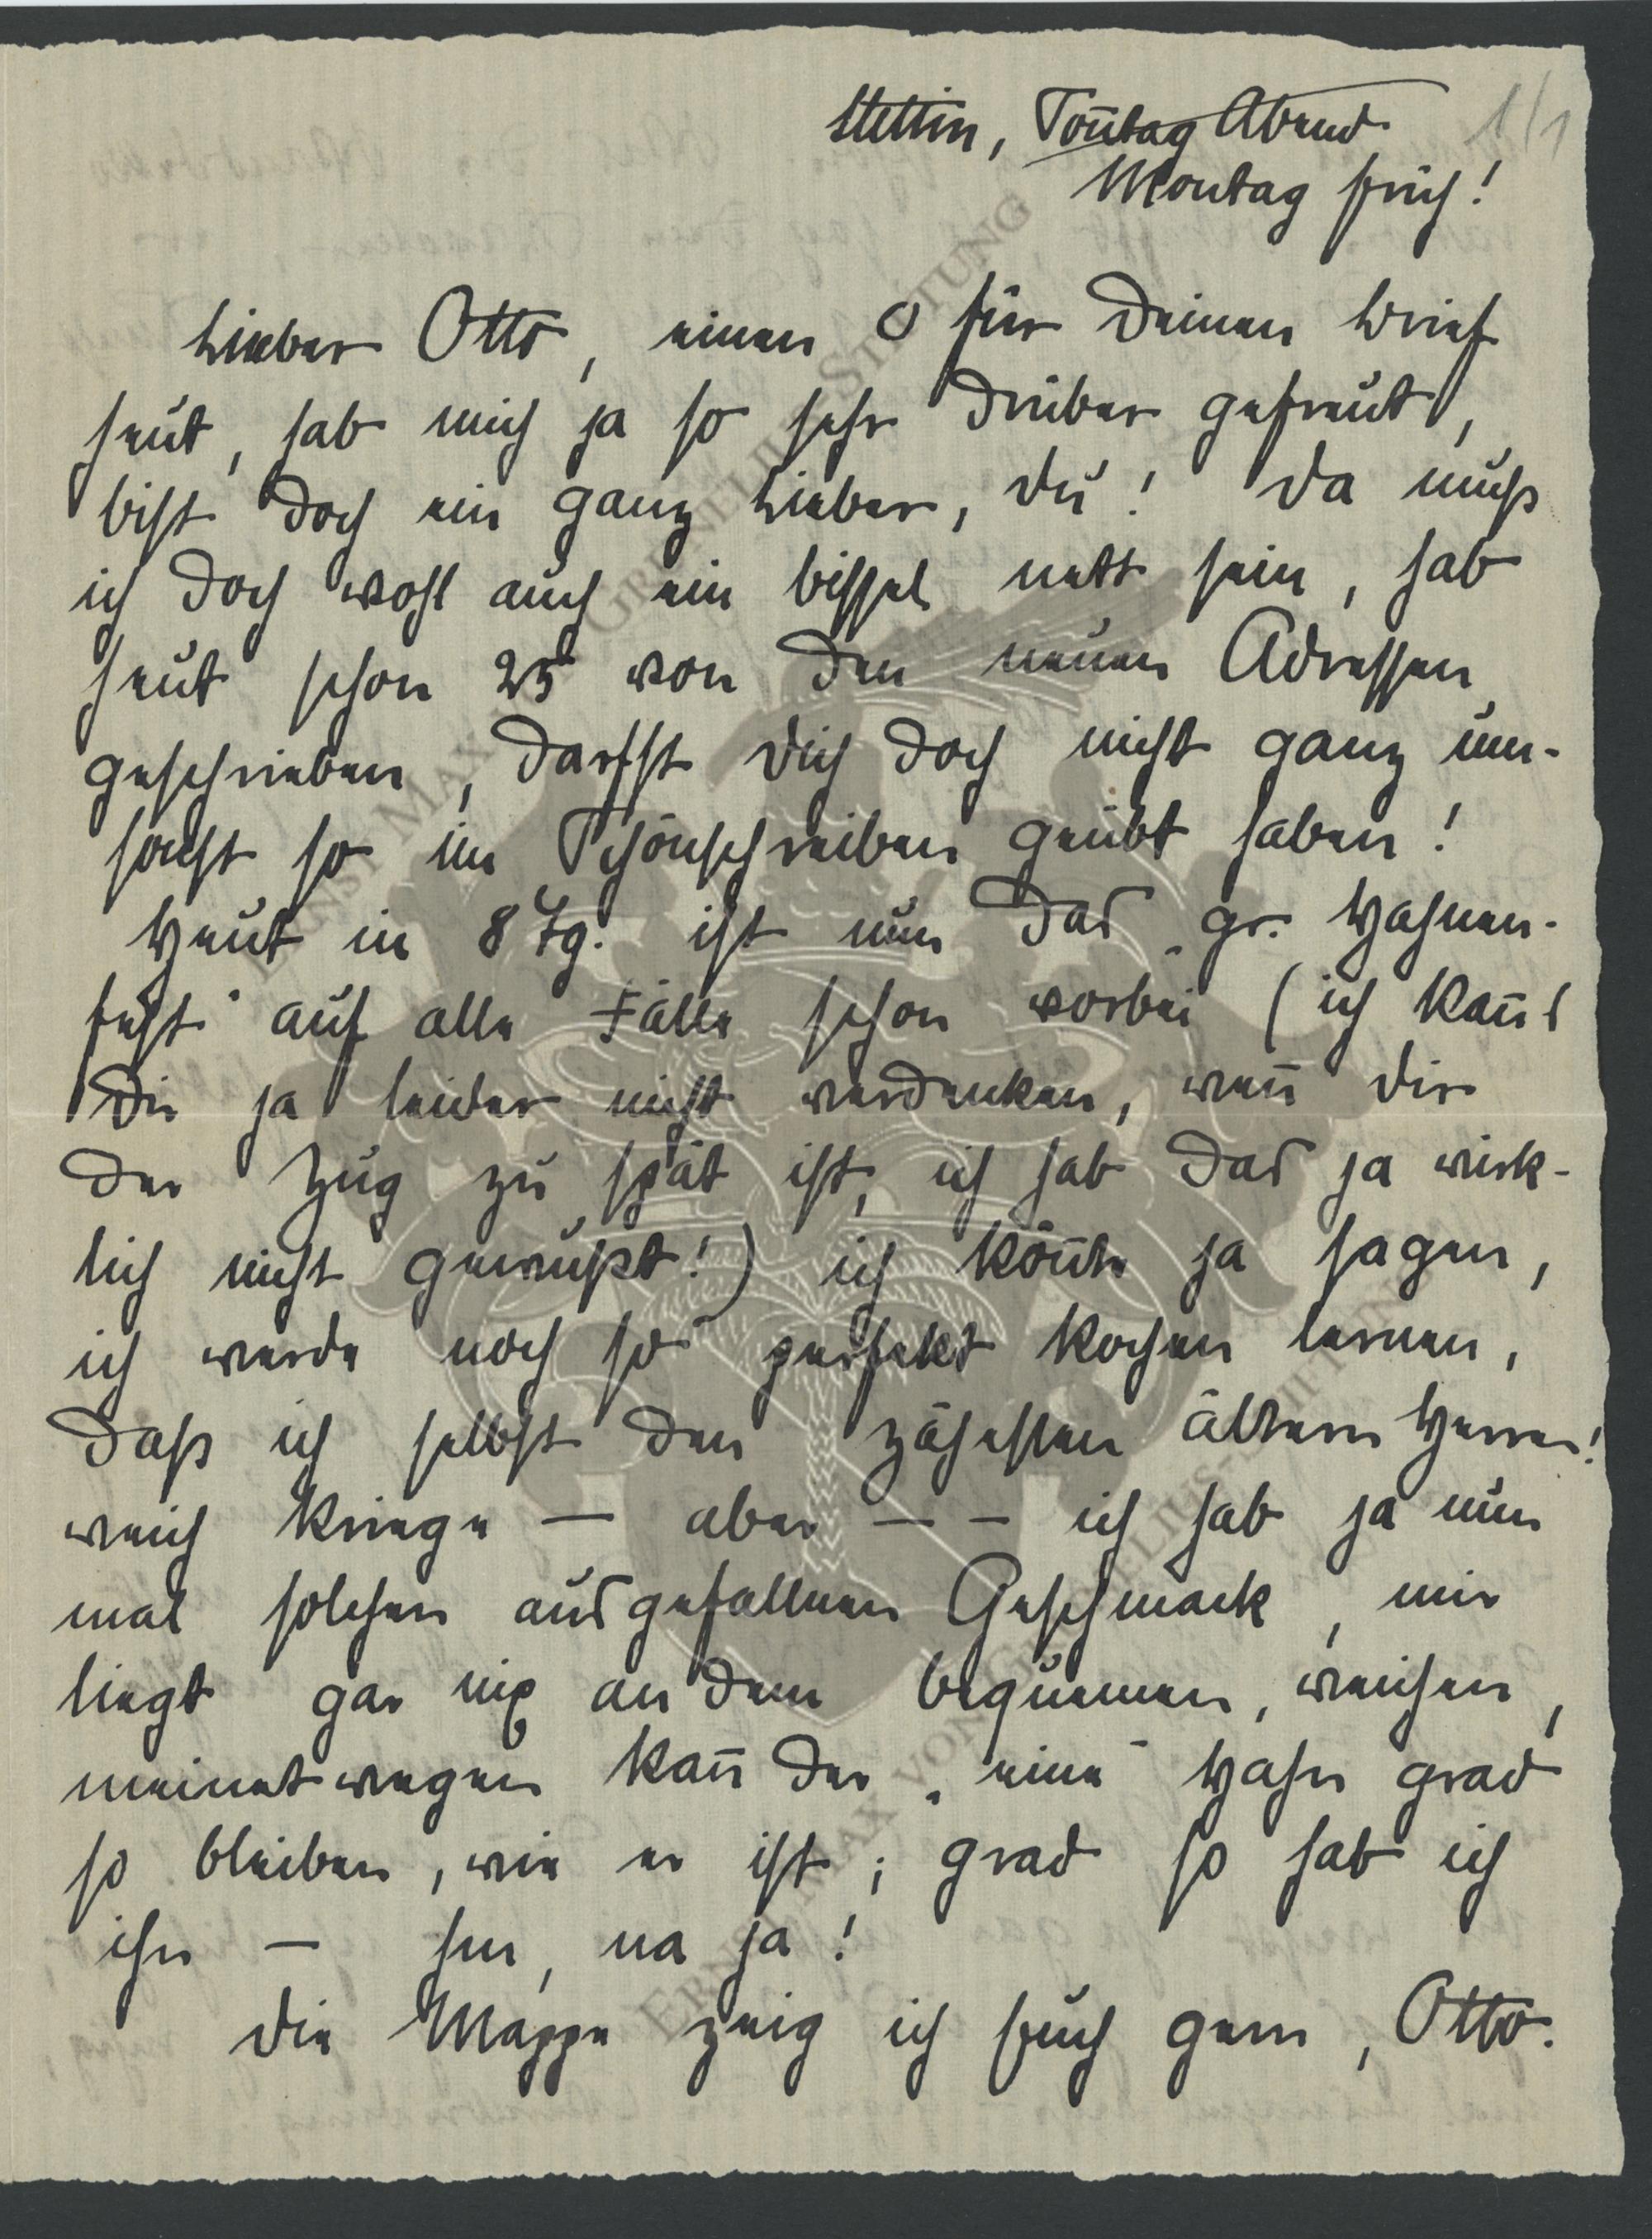 Stettin, Sonntag Abend 1/1
Montag früh!
Lieber Otto, einen O für Deinen Brief
heut, hab mich ja so sehr drüber gefreut,
bist doch ein ganz Lieber, Du! Da muß
ich doch wohl auch ein bissel nett sein, hab
heut schon 25 von den neuen Adressen
geschrieben, darfst Dich doch nicht ganz um-
sonst so im Schönschreiben geübt haben!
Heut in 8 Tg. ist nun das „gr. Hahnen-
fest“ auf alle Fälle schon vorbei (ich kanns
Dir ja leider nicht verdenken, wenn Dir
der Zug zu spät ist, ich hab das ja wirk-
lich nicht gewußt!) ich könnte ja sagen,
ich werde noch so perfekt kochen lernen,
daß ich selbst den zähesten älteren Herren!
weich kriege — aber — — ich hab ja nun
mal solchen ausgefallnen Geschmack, mir
liegt gar nix an dem bequemen, weichen,
meinetwegen kann der „eine“ Hahn grad
so bleiben, wie er ist; grad so hab ich
ihn — hm, na ja!
Die Mappe zeig ich Euch gern, Otto.
ERNST MAX VON GRUNELIUS-STIFTUNG
ERNST MAX VON GRUNELIUS-STIFTUNG